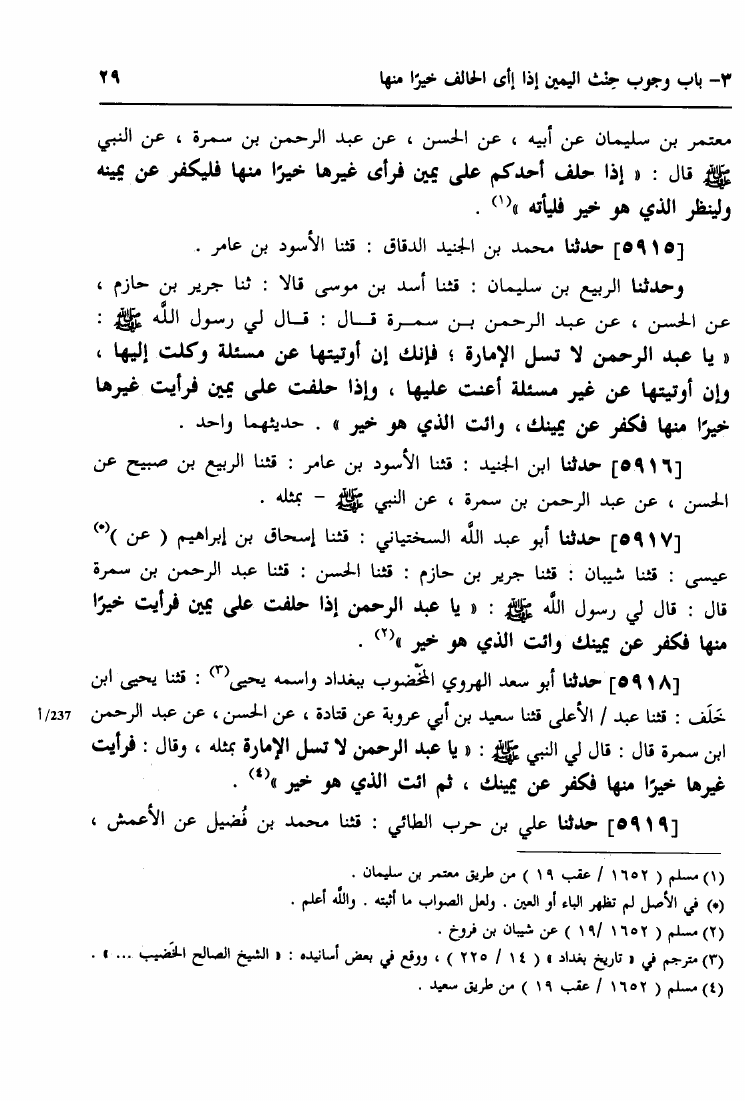 ٣- باب وجوب حِنْث اليمين إذا إأى الحالف خيرًا منها ٢٩
معتمر بن سليمان عن أبيه ، عن الحسن ، عن عبد الرحمن بن سمرة ، عن النبي
ﷺ قال : « إذا حلف أحدكم على يمين فرأى غيرها خيرًا منها فليكفر عن يمينه
ولينظر الذي هو خير فليأته »(١) .
[٥٩١٥] حدثنا محمد بن الجنيد الدقاق : قثنا الأسود بن عامر .
وحدثنا الربيع بن سليمان : قثنا أسد بن موسى قالا : ثنا جرير بن حازم ،
عن الحسن ، عن عبد الرحمن بـن سمـرة قـال : قـال لي رسول اللَّه ﷺ :
« يا عبد الرحمن لا تسل الإمارة ؛ فإنك إن أوتيتها عن مسئلة وكلت إليها ،
وإن أوتيتها عن غير مسئلة أعنت عليها ، وإذا حلفت على يمين فرأيت غيرها
خيرًا منها فكفر عن يمينك، وائت الذي هو خير » . حديثهما واحد .
[٥٩١٦] حدثنا ابن الجنيد : قثنا الأسود بن عامر : قثنا الربيع بن صبيح عن
الحسن ، عن عبد الرحمن بن سمرة ، عن النبي ﷺ - بمثله .
[٥٩١٧] حدثنا أبو عبد اللَّه السختياني : قثنا إسحاق بن إبراهيم ( عن )(*)
عيسى : قثنا شيبان : قثنا جرير بن حازم : قثنا الحسن : قثنا عبد الرحمن بن سمرة
قال : قال لي رسول اللَّه ﷺ : « يا عبد الرحمن إذا حلفت على يمين فرأيت خيرًا
منها فكفر عن يمينك وائت الذي هو خير »(٢) .
[٥٩١٨] حدثنا أبو سعد الهروي المخَضوب ببغداد واسمه يحيى(٣) : قثنا يحيى ابن
خَلَف : قثنا عبد / الأعلى قثنا سعيد بن أبي عروبة عن قتادة ، عن الحسن، عن عبد الرحمن 237/أ
ابن سمرة قال : قال لي النبي ﷺ : « يا عبد الرحمن لا تسل الإمارة بمثله ، وقال : فرأيت
غيرها خيرًا منها فكفر عن يمينك ، ثم ائت الذي هو خير »(٤) .
[٥٩١٩] حدثنا علي بن حرب الطائي : قثنا محمد بن فُضيل عن الأعمش ،
(١) مسلم ( ١٦٥٢ / عقب ١٩ ) من طريق معتمر بن سليمان .
(*) في الأصل لم تظهر الباء أو العين . ولعل الصواب ما أثبته . واللَّه أعلم .
(٢) مسلم ( ١٦٥٢ /١٩ ) عن شيبان بن فروخ .
(٣) مترجم في « تاريخ بغداد » ( ١٤ / ٢٢٥ ) ، ووقع في بعض أسانيده : « الشيخ الصالح الخَضيب ... » .
(٤) مسلم ( ١٦٥٢ / عقب ١٩ ) من طريق سعيد .